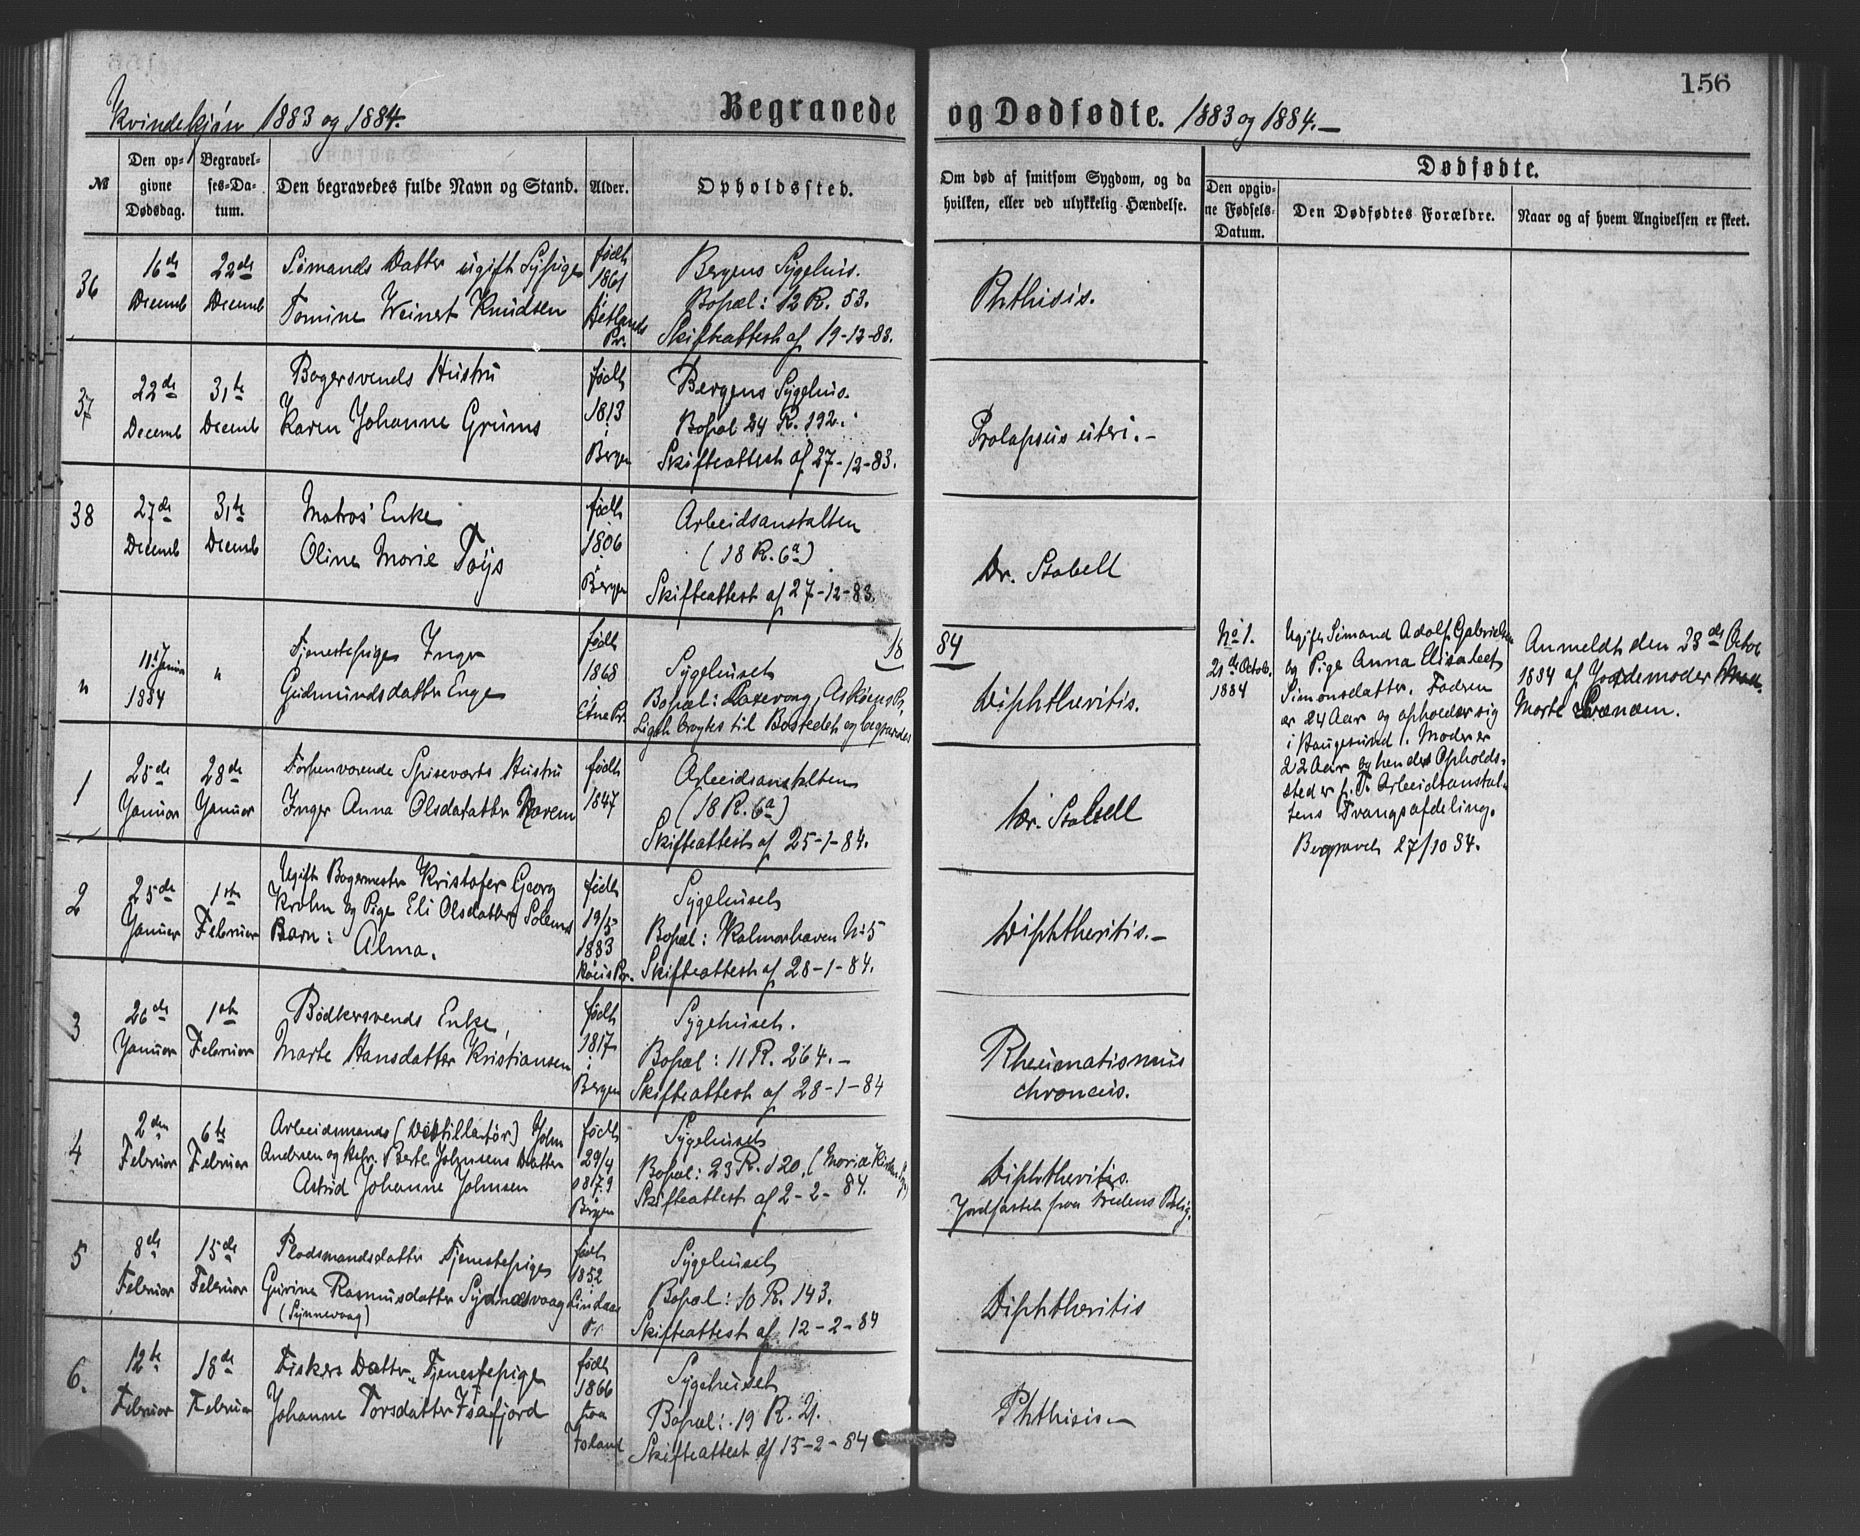 156
Kvindekjøn 1883 og 1884. Begravede og Dødfødte. 1883 og 1884.—
№
Den opgivne Dødsdag.
Begravelses-Datum.
Den begravedes fulde Navn og Stand.
Alder.
Opholdssted.
Om død af smitsom Sygdom, og da hvilken, eller ved ulykkelig Hændelse.
Dødfødte.
Den opgivne Fødsels-Datum.
Den Dødfødtes Forældre.
Naar og af hvem Angivelsen er skeet.
36
16de Decemb
22de Decemb
Sømands Datter ugift Sypige
Tomine Weinert Knudsen
født 1861 i Hetlands Pr.
Bergens Sygehus.
Bopæl: 12 R. 53.
Skifteattest af 19-12-83.
Phthisis.
37
22de Decemb
31te Decemb
Bagersvends Hustru
Karen Johanne Grüms
født 1813 i Bergen
Bergens Sygehus.
Bopæl 24 R. 192.
Skifteattest af 27-12-83.
Prolapsus uteri.—
38
27de Decemb
31te Decemb
Matros' Enke
Oline Marie Töys
født 1806 i Bergen
Arbeidsanstalten
(18 R. 6a)
Skifteattest af 27-12-83.
Dr. Stabell
1884
"
11te Januar 1884
"
Tjenestepige Inger
Gudmundsdatter Enge
født 1868 i Etne Pr.
Sygehuset
Bopæl: Laxevaag, Askøens Pr.
Liget bragtes til Bostedet og begravdes
Diphtheritis.
No 1.
21de Octob. 1884
Ugift Sømand Adolf Gabrielsen
og Pige Anna Elisabeth
Simonsdatter. Faderen
er 24 Aar og opholder sig
i Haugesund. Moder er
22 Aar og hendes Opholds-
sted er f. T. Arbeidsanstal-
tens Tvangsafdeling.
Begravet 27/10 84.
Anmeldt den 23de Octob
1884 af Jordemoder
Marte Svanøm.
1
25de Januar
28de Januar
Forhenværende Spiseværts Hustru
Inger Anna Olsdatter Waren
født 1847
Arbeidsanstalten
(18 R. 6a)
Skifteattest af 25-1-84.
Dr. Stabell
2
25de Januar
1ste Februar
Ugift Bagermester Kristofer Georg
Krohn og Pige Eli Olsdatter Solems
Barn: Alma.
født 19/5 1883 Røeus Pr.
Sygehuset
Bopæl: Kalmarhaven No 5
Skifteattest af 28-1-84.
Diphtheritis.—
3
26de Januar
1ste Februar
Bödkersvends Enke,
Marte Hansdatter Kristiansen
født 1817 i Bergen
Sygehuset.
Bopæl: 11 R. 264.—
Skifteattest af 28-1-84
Rheumatismus
chronicus.
4
2den Februar
6te Februar
Arbeidsmands (Destillatør) John
Andersen og Kstr. Berte Johnsens Datter
Astrid Johanne Johnsen
født 29/4 1879 Bergen
Sygehuset
Bopæl: 23 R. 120. (Maria Kirkens Sogn)
Skifteattest af 2-2-84.
Diphtheritis.
Jordfæstet fra Fredens Bolig.
5
8de Februar
15de Februar
Pladsmandsdatter Tjenestepige
Gurine Rasmusdatter Sydnæsvaag
(Synnevaag)
født 1852 Lindaas Pr
Sygehuset
Bopæl: 10 R. 143.
Skifteattest af 12-2-84
Diphtheritis
6.
12te Februar
18de Februar
Fiskers Datter, Tjenestepige
Johanne Torsdatter Isafjord
født 1866 paa Island
Sygehuset
Bopæl: 19 R. 21.
Skifteattest af 15-2-84
Phthisis.—